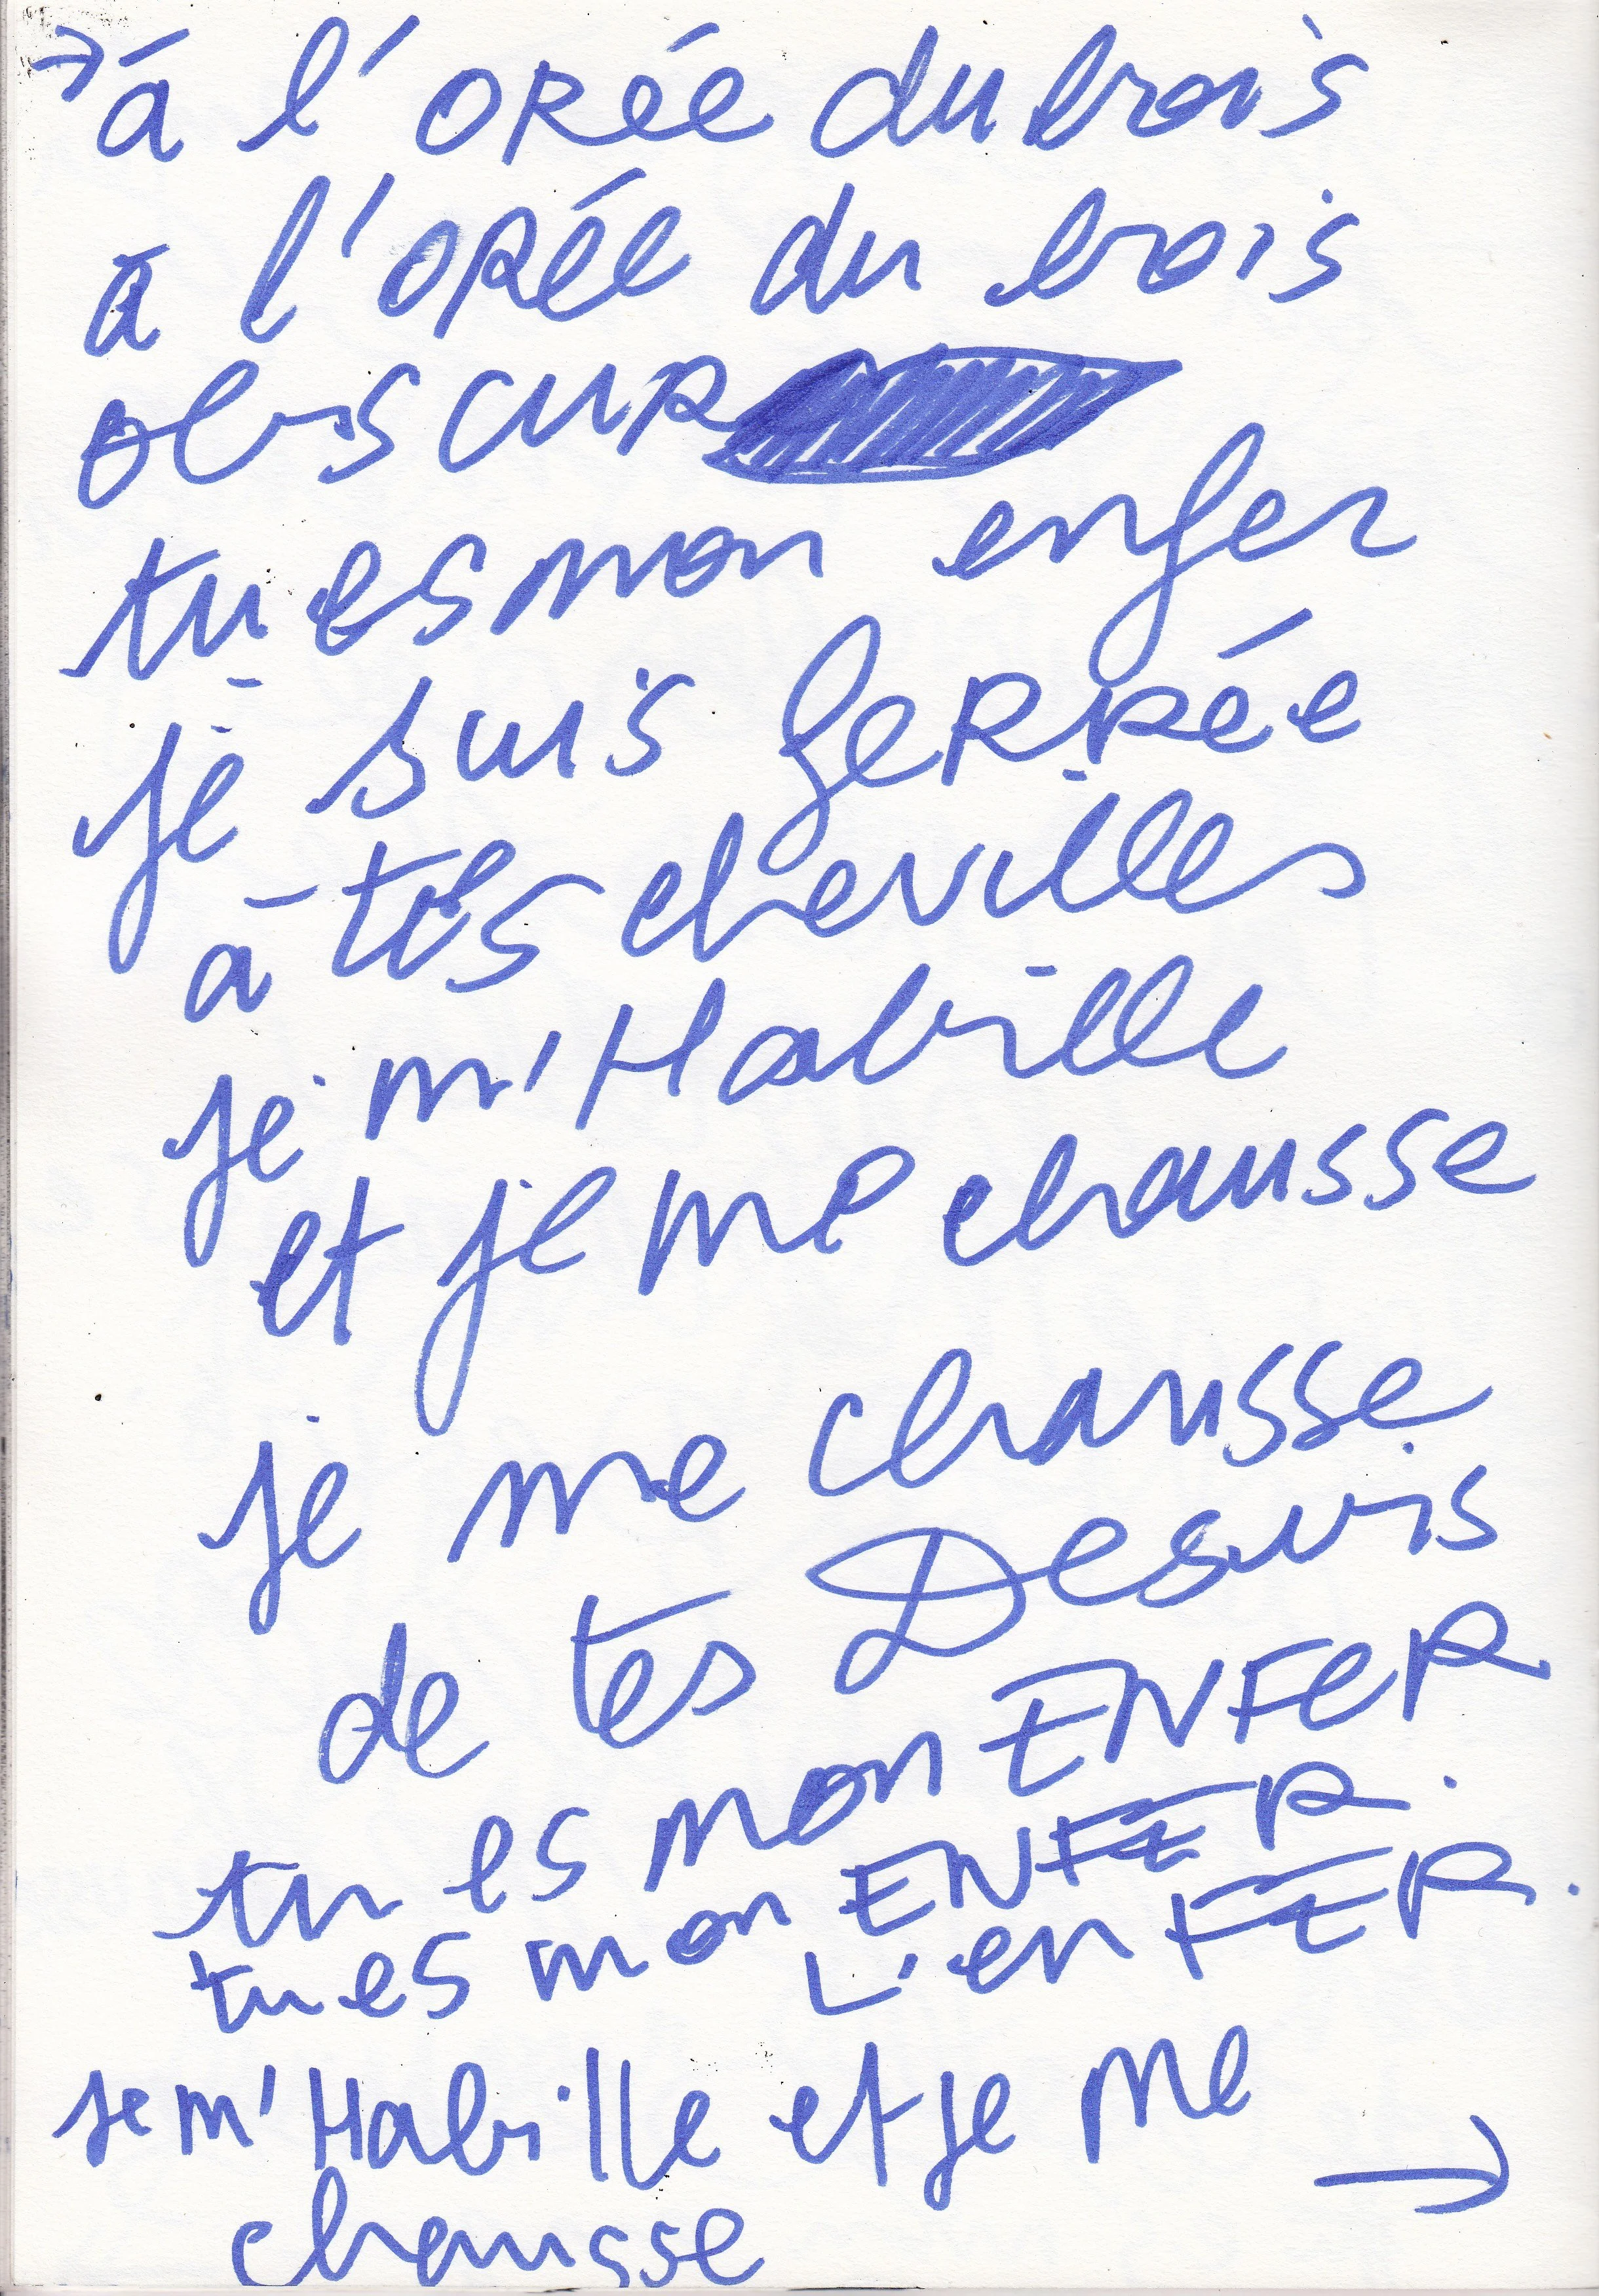 → à l'ORée du bois
à l'ORée du bois
obscuR
tu es mon enfer
je suis feRRée
à tes chevilles
je m'Habille
et je me chausse
je me chausse
de tes Desuis
tu es mon ENFeR
tu es mon ENFER.
L'enFER.
je m'Habille et je me →
chausse